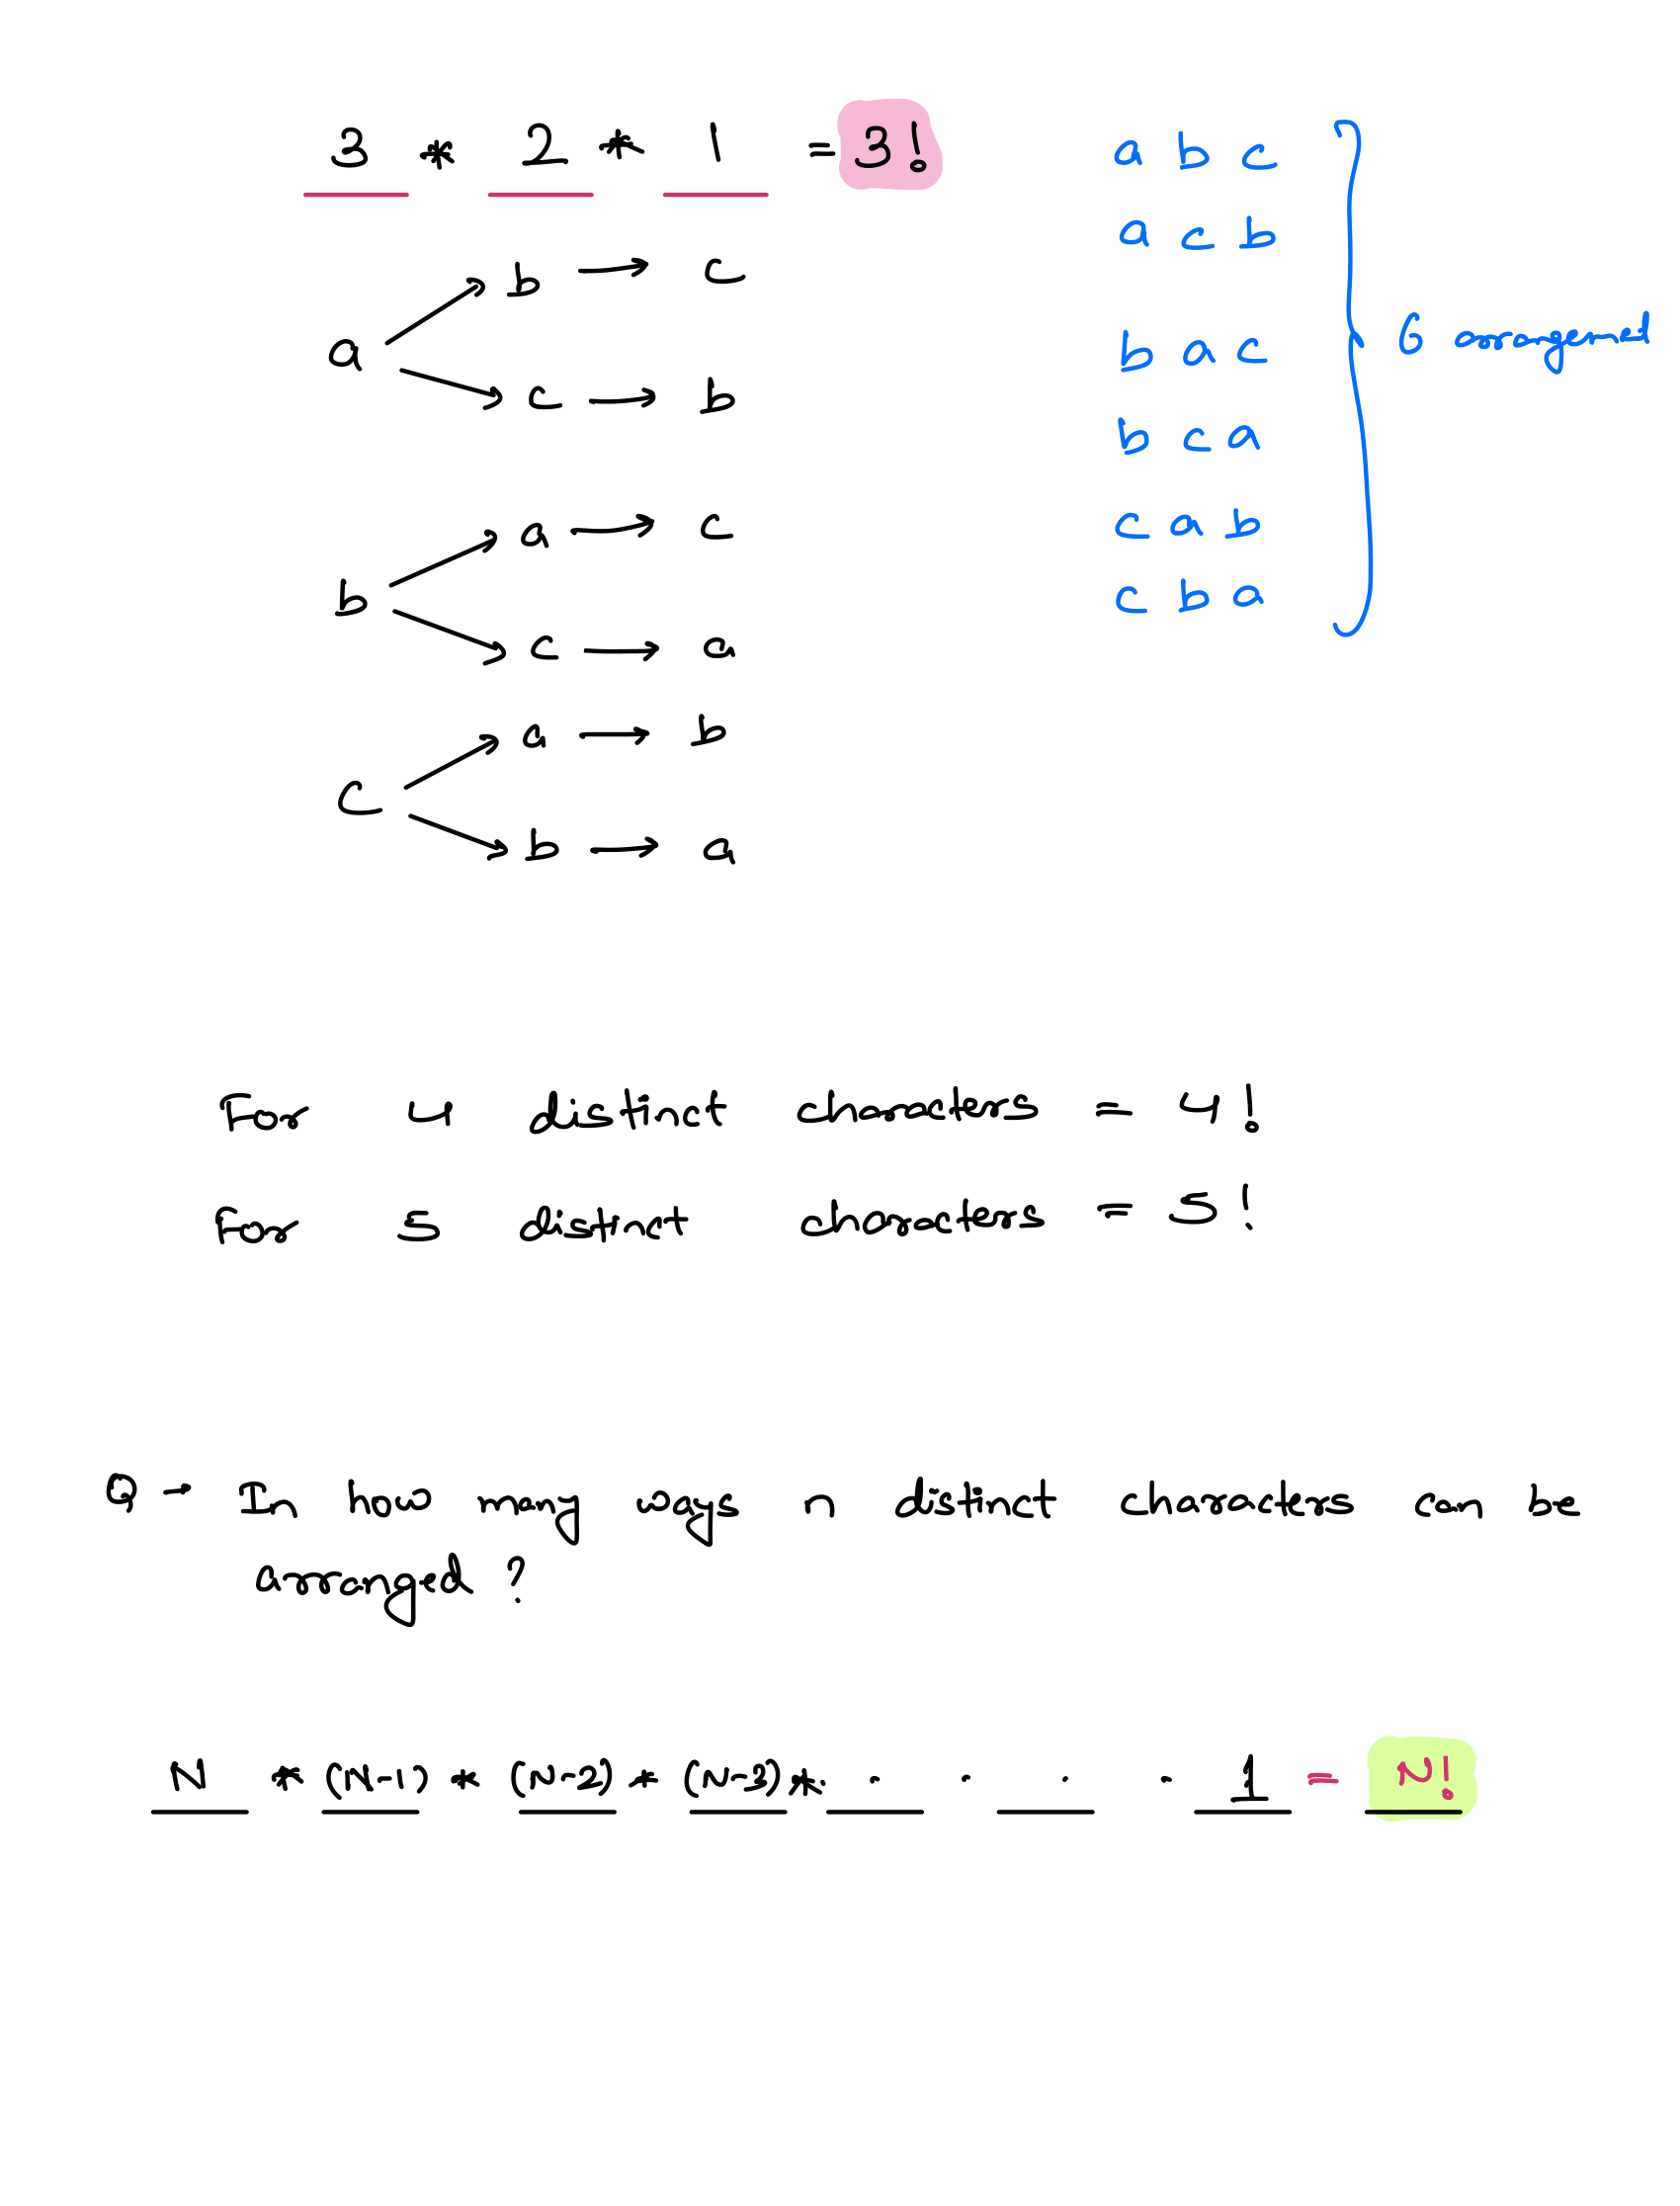 3 * 2 * 1 = 3!
a → b → c
a → c → b
b → a → c
b → c → a
c → a → b
c → b → a
a b c
a c b
b a c
b c a
c a b
c b a
6
For 4 distinct characters = 4!
For 5 distinct characters = 5!
Q → In how many ways n distinct characters can be
arranged ?
N * (N-1) * (N-2) * (N-3) * . . . . . 1 = N!